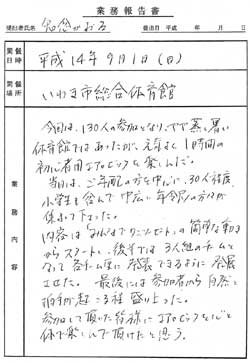 業務報告書
提出者氏名 知念かおる 提出日 平成 年 月 日
開催日時 平成14年9月1日(日)
開催場所 いわき市総合体育館
業務内容
今回は、130人の参加となり、とても蒸し暑い
体育館ではあったが、元気よく1時間の
初心者用エアロビックを楽しんだ。
当日は、ご年配の方を中心に、30人程度
小学生も含んで 中広い年令層の方々が
集って下さった。
内容は、簡単な動き
からスタートし、後半では3人組のチームと
なって各チーム毎に発表できるように発展
させた。最後には参加者から自然と
拍手が起こる程盛り上った。
参加して頂いた皆様にエアロビックを心と
体で楽しんで頂けたと思う。